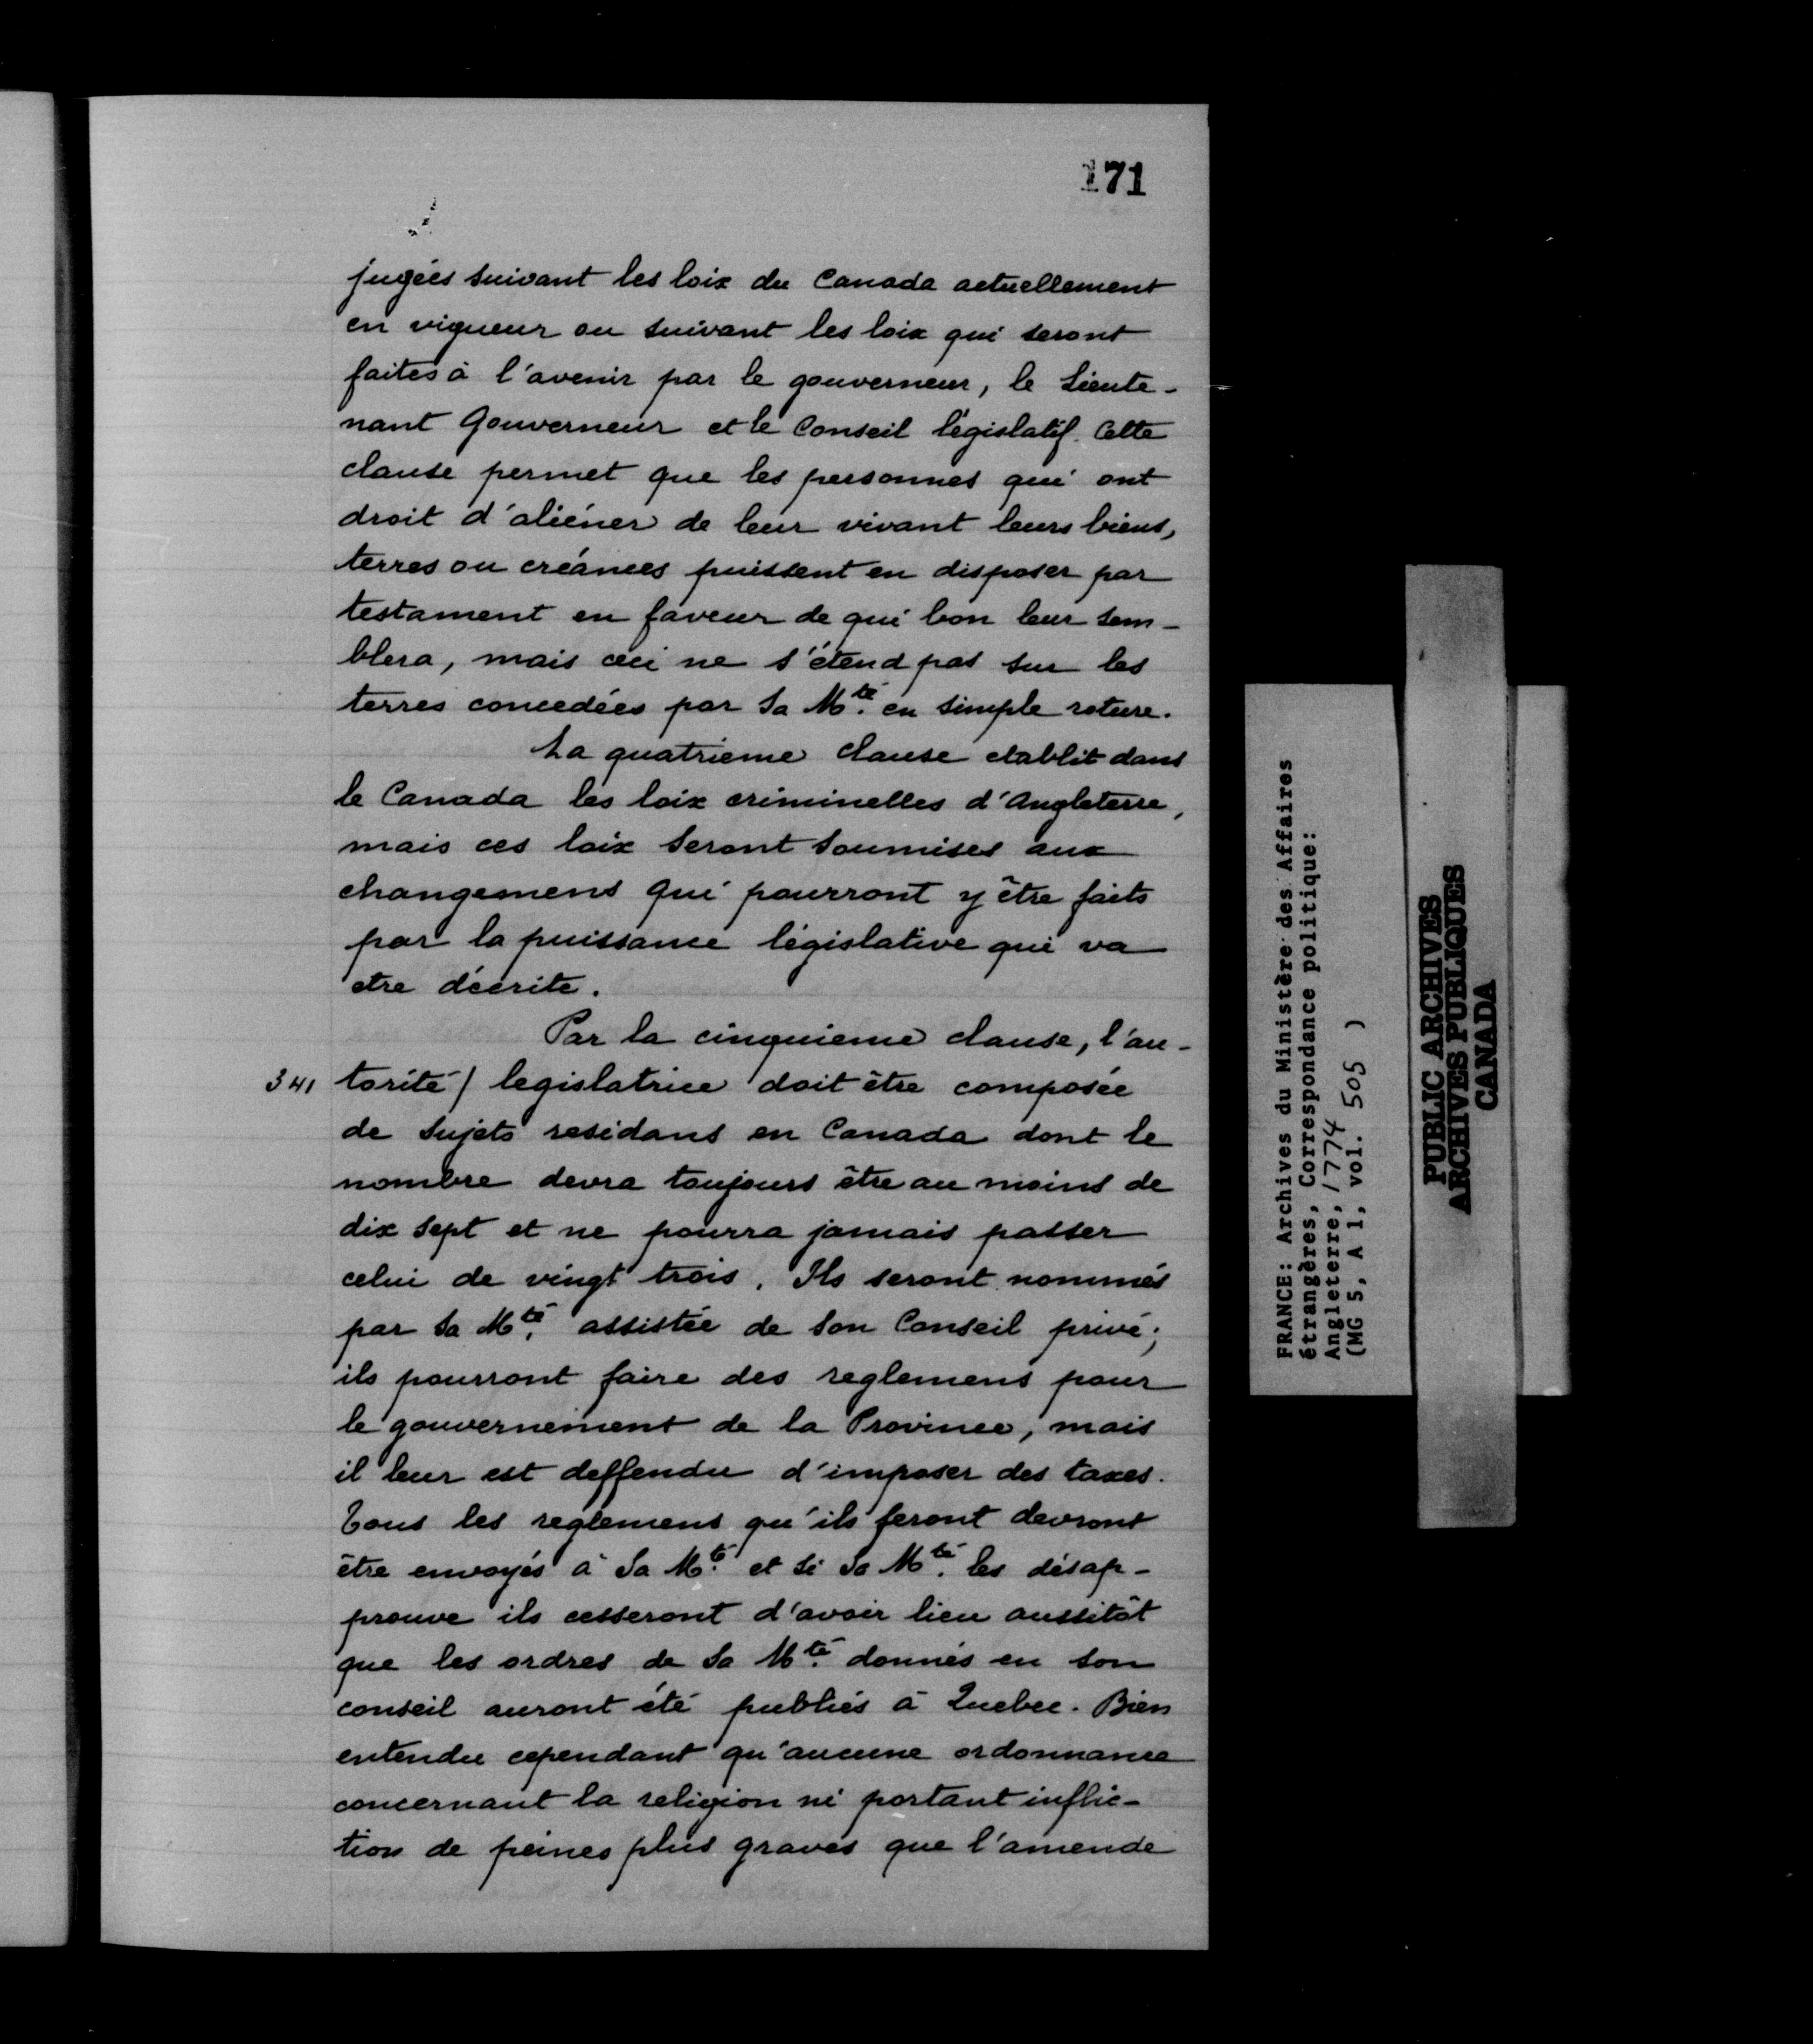 171
jugées suivant les loix du Canada actuellement
en vigueur ou suivant les loix qui seront
faites à l'avenir par le gouverneur, le Lieute-
nant Gouverneur et le Conseil législatif. Cette
clause permet que les personnes qui ont
droit d'aliéner de leur vivant leurs biens,
terres ou créances puissent en disposer par
testament en faveur de qui bon leur sem-
blera, mais ceci ne s'étend pas sur les
terres concedées par Sa Mté. en simple roture.
La quatrieme clause etablit dans
le Canada les loix criminelles d'Angleterre,
mais ces loix seront soumises aux
changemens qui pourront y être faits
par la puissance législative qui va
etre décrite.
Par la cinquieme clause, l'au-
341 torité / legislatrice doit être composée
de Sujets residans en Canada dont le
nombre devra toujours être au moins de
dix sept et ne pourra jamais passer
celui de vingt trois. Ils seront nommés
par Sa Mté. assistée de son Conseil privé;
ils pourront faire des reglemens pour
le gouvernement de la Province, mais
il leur est deffendu d'imposer des taxes.
Tous les reglemens qu'ils feront devront
être envoyés à Sa Mté. et si Sa Mté. les désap-
prouve ils cesseront d'avoir lieu aussitôt
que les ordres de Sa Mté. donnés en son
conseil auront été publiés à Quebec. Bien
entendu cependant qu'aucune ordonnance
concernant la religion ni portant inflic-
tion de peines plus graves que l'amende
FRANCE: Archives du Ministère des Affaires
étrangères, Correspondance politique:
Angleterre, 1774
(MG 5, A 1, vol. 505 )
PUBLIC ARCHIVES
ARCHIVES PUBLIQUES
CANADA